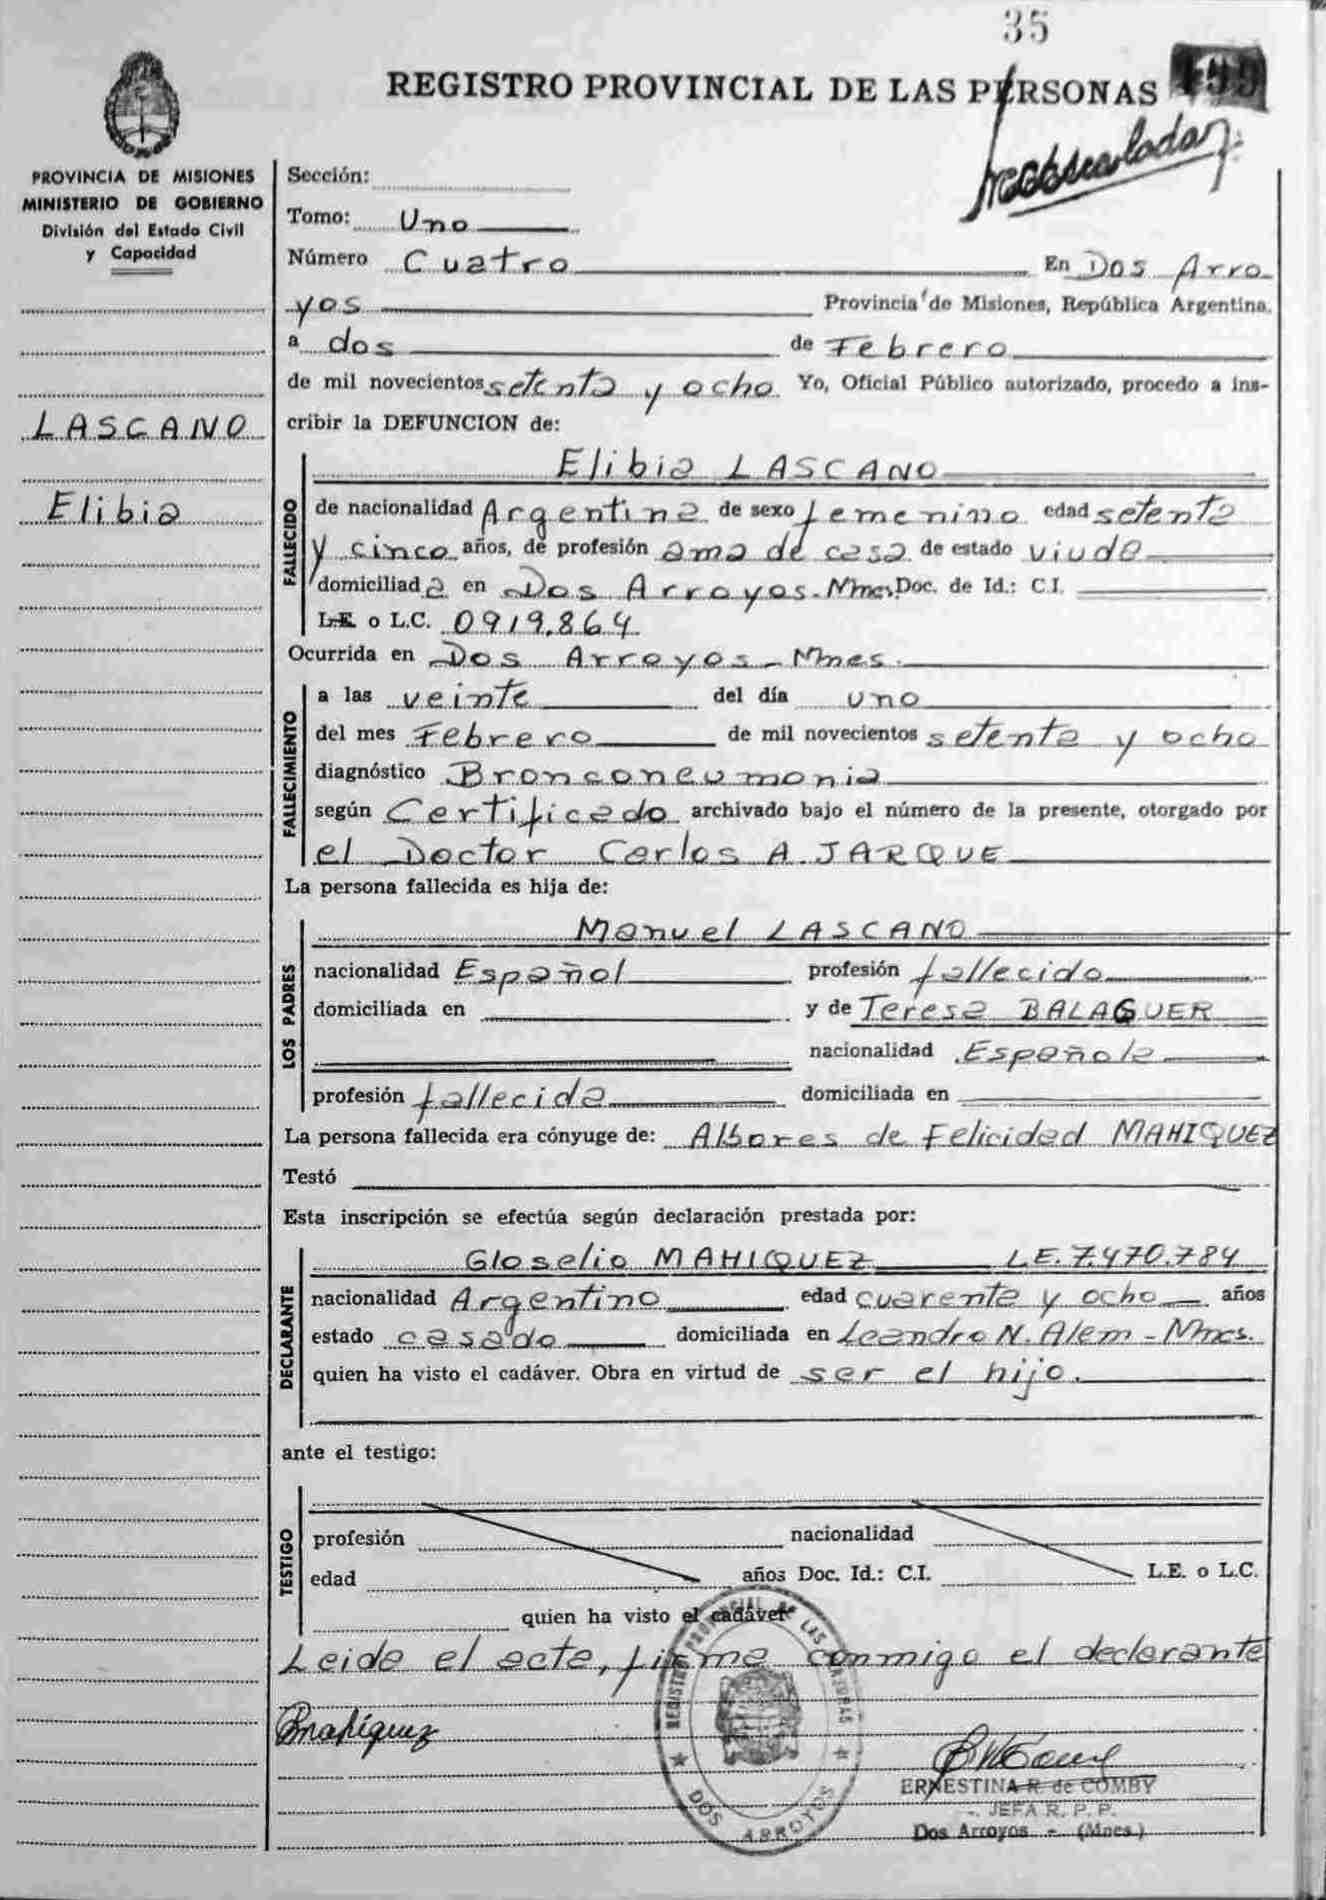 35
REGISTRO PROVINCIAL DE LAS PERSONAS 199
PROVINCIA DE MISIONES
MINISTERIO DE GOBIERNO
División del Estado Civil
y Capacidad
LASCANO
Elibia
Sección:
Tomo: Uno
Número Cuatro En Dos Arro
yos Provincia de Misiones, República Argentina,
a dos de Febrero
de mil novecientos setenta y ocho Yo, Oficial Público autorizado, procedo a ins-
cribir la DEFUNCION de:
FALLECIDO
Elibia LASCANO
de nacionalidad Argentina de sexo femenino edad setenta
y cinco años, de profesión ama de casa de estado viuda
domiciliad a en Dos Arroyos-Mnes. Doc. de Id.: C.I.
L.E. o L.C. 0919.864
Ocurrida en Dos Arroyos-Mnes.
FALLECIMIENTO
a las veinte del día uno
del mes Febrero de mil novecientos setenta y ocho
diagnóstico Bronconeumonia
según Certificado archivado bajo el número de la presente, otorgado por
el Doctor Carlos A. JARQUE
La persona fallecida es hija de:
LOS PADRES
Manuel LASCANO
nacionalidad Español profesión fallecido
domiciliada en y de Teresa BALAGUER
nacionalidad Española
profesión fallecida domiciliada en
La persona fallecida era cónyuge de: Albores de Felicidad MAHIQUEZ
Testó
Esta inscripción se efectúa según declaración prestada por:
DECLARANTE
Gloselio MAHIQUEZ L.E. 7.470.784
nacionalidad Argentino edad cuarenta y ocho años
estado casado domiciliada en Leandro N. Alem-Mnes.
quien ha visto el cadáver. Obra en virtud de ser el hijo.
ante el testigo:
TESTIGO
profesión nacionalidad
edad años Doc. Id.: C.I. L.E. o L.C.
quien ha visto el cadáver
Leida el acta, firma conmigo el declarante
REGISTRO PROVINCIAL DE LAS PERSONAS
DOS ARROYOS
ERNESTINA R. de COMBY
JEFA R. P. P.
Dos Arroyos - (Mnes.)